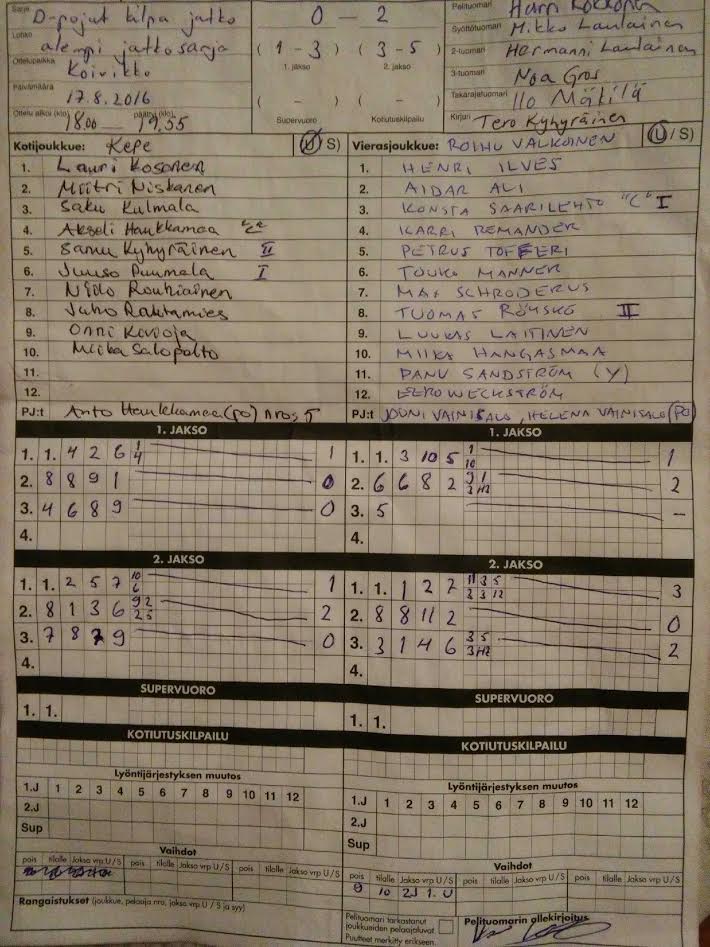 Sarja D-pojat kilpa jatko
Lohko alempi jatkosarja
Ottelupaikka Koivikko
Päivämäärä 17.8.2016
Ottelu alkoi (klo) 18.00 — päättyi (klo) 19.55
0 – 2
( 1 – 3 ) ( 3 – 5 )
1. jakso 2. jakso
( – ) ( – )
Supervuoro Kotiutuskilpailu
Pelituomari Harri
Syöttötuomari Mikko Laulainen
2-tuomari Hermanni Laulainen
3-tuomari Noa Gros
Takarajatuomari Ilo Mäkilä
Kirjuri Tero Kyhyräinen
Kotijoukkue: KePe (U/S)
1. Lauri Kosonen
2. Miitri Niskanen
3. Saku Kulmala
4. Akseli Haukkamaa "C"
5. Samu Kyhyräinen II
6. Juuso Puumala I
7. Niilo Rouhiainen
8. Juho Rautamies
9. Onni Karioja
10. Miika Salopelto
11.
12.
PJ:t Anto Haukkamaa (po)
Vierasjoukkue: ROIHU VALKOINEN (U/S)
1. HENRI ILVES
2. AIDAR ALI
3. KONSTA SAARILEHTO "C" I
4. KARRI REMANDER
5. PETRUS TOFFERI
6. TOUKO MANNER
7. MAX SCHRODERUS
8. TUOMAS RÖMSKÖ II
9. LUUKAS LAITINEN
10. MIIKA HANGASMAA
11. PANU SANDSTRÖM (Y)
12. EERO WECKSTRÖM
PJ:t JOUNI VAINISALO, HELENA VAINISALO (PO)
1. JAKSO
1. 1. 4 2 6 1 4 1
2. 8 8 9 1 0
3. 4 6 8 9 0
4.
1. JAKSO
1. 1. 3 10 5 1 10 1
2. 6 6 8 2 9 1 3 H2 2
3. 5 –
4.
2. JAKSO
1. 1. 2 5 7 10 6 1
2. 8 1 3 6 9 2 2 5 2
3. 7 8 7 9 0
4.
2. JAKSO
1. 1. 1 2 2 11 3 5 2 3 12 3
2. 8 8 11 2 0
3. 3 1 4 6 3 5 3 H2 2
4.
SUPERVUORO
1. 1.
SUPERVUORO
1. 1.
KOTIUTUSKILPAILU
KOTIUTUSKILPAILU
Lyöntijärjestyksen muutos
1.J 1 2 3 4 5 6 7 8 9 10 11 12
2.J
Sup
Lyöntijärjestyksen muutos
1.J 1 2 3 4 5 6 7 8 9 10 11 12
2.J
Sup
Vaihdot
pois tilalle Jakso vrp U/S pois tilalle Jakso vrp U/S pois tilalle Jakso vrp U/S
Vaihdot
pois tilalle Jakso vrp U/S pois tilalle Jakso vrp U/S pois tilalle Jakso vrp U/S
9 10 2J 1. U
Rangaistukset (joukkue, pelaaja nro, jakso vrp U / S ja syy)
Pelituomari tarkastanut
joukkueiden pelaajaluvat
Puutteet merkitty erikseen.
Pelituomarin allekirjoitus